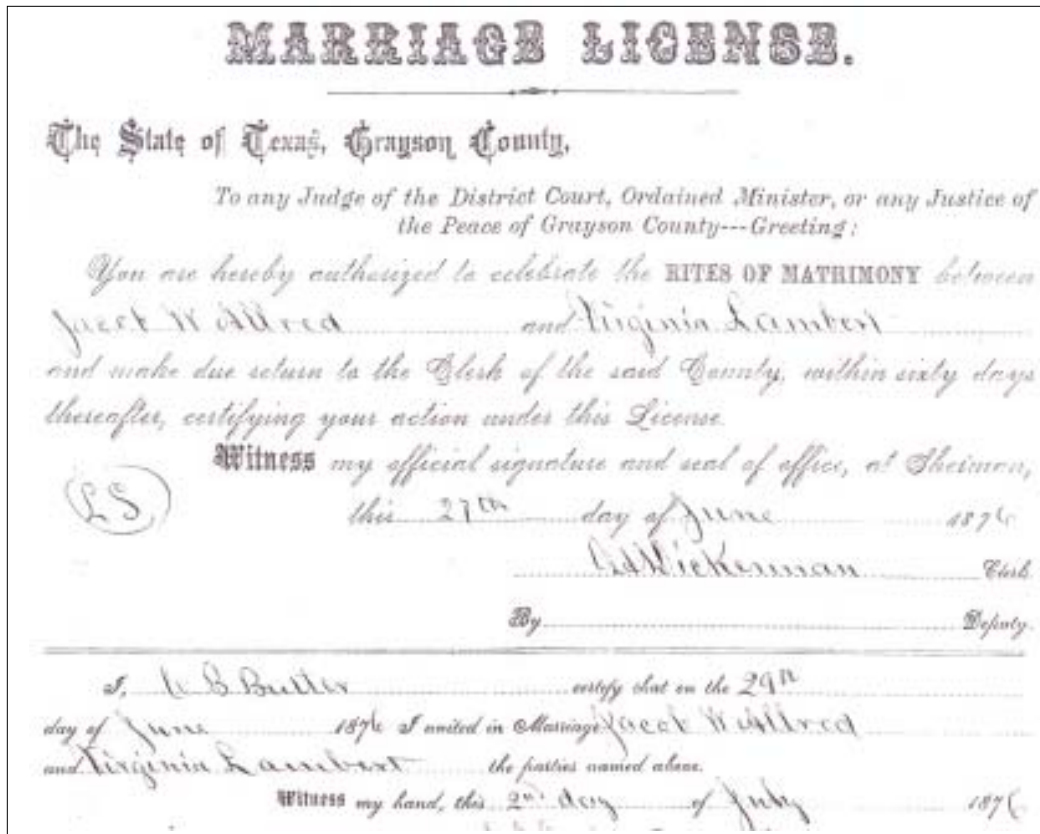 MARRIAGE LICENSE.
The State of Texas, Grayson County,
To any Judge of the District Court, Ordained Minister, or any Justice of
the Peace of Grayson County---Greeting:
You are hereby authorized to celebrate the RITES OF MATRIMONY between
Jacob W Allred and Virginia Lambert
and make due return to the Clerk of the said County, within sixty days
thereafter, certifying your action under this License.
Witness my official signature and seal of office, at Sherman,
LS
this 27th day of June 1876
Clerk.
By Deputy.
I, Butler certify that on the 29th
day of June 1876 I united in Marriage Jacob W Allred
and Virginia Lambert the parties named above.
Witness my hand, this 2nd day of July 1876